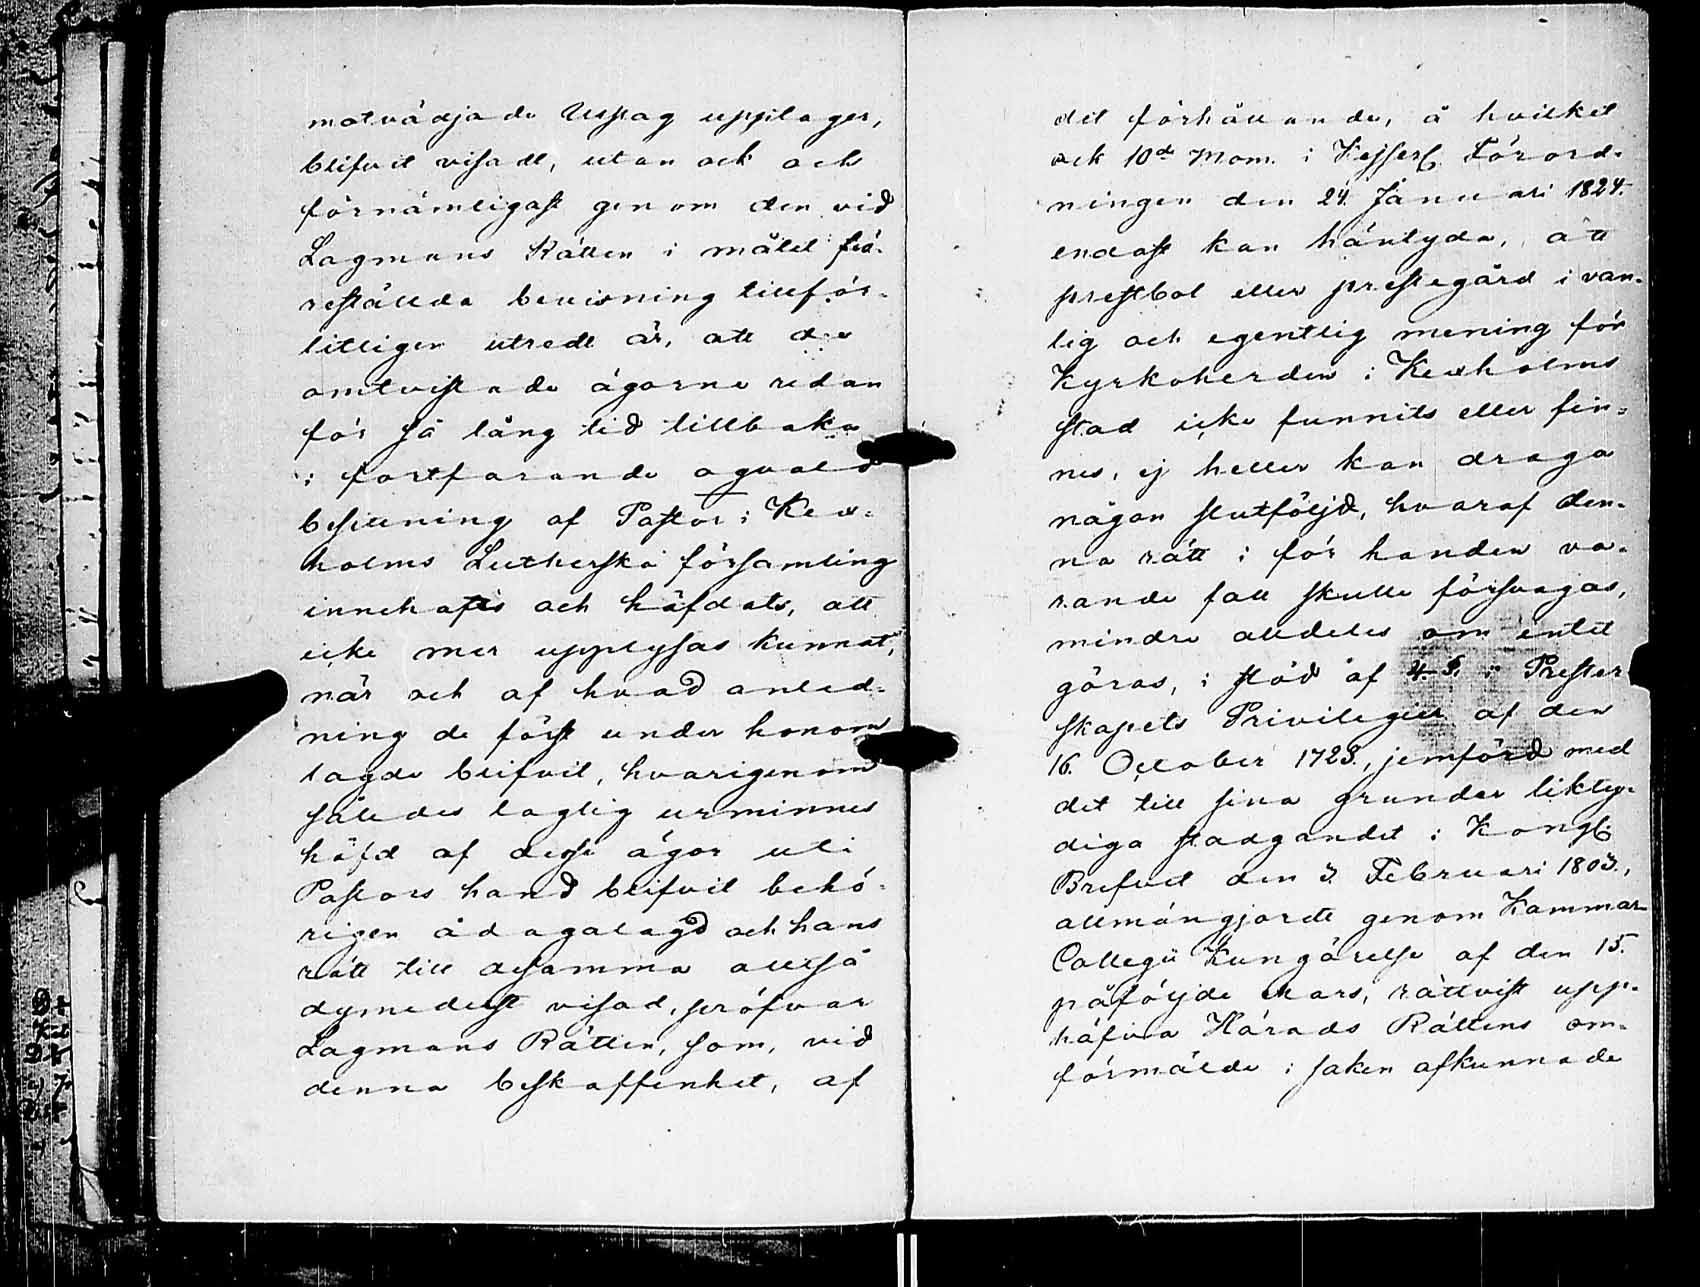 motvädjade Utslag upptages,
blifvit visadt, utan ock och
förnämligast genom den vid
Lagmans Rätten i målet fö-
reställda bevisning tillför-
litligen utredt är, att de
omtvistade ägorne redan
för så lång tid tillbaka
i fortfarande oqvald
besittning af Pastor i Kex-
holms Lutherska församling
innehafts och häfdats, att
icke mer upplysas kunnat,
när och af hvad anled-
ning de först under honom
lagde blifvit, hvarigenom
således laglig urminnes
häfd af desse ägor uti
Pastors hand blifvit behö-
rigen ådagalagd och hans
rätt till desamma alltså
dymedelst visad, pröfvar
Lagmans Rätten, som, vid
denna beskaffenhet, af
det förhållande, å hvilket
ock 10de Mom. i Kejserl. Förord-
ningen den 24. Januari 1824.
endast kan häntyda, att
prestbol eller prestegård i van-
lig och egentlig mening för
Kyrkoherden i Kexholms
stad icke funnits eller fin-
nes, ej heller kan draga
någon slutföljd, hvaraf den-
na rätt i för handen va-
rande fall skulle försvagas,
mindre alldeles om intet
göras, i stöd af 4. §. i Prester-
skapets Privilegier af den
16. October 1723., jemförd med
det till sina grunder likty-
diga stadgandet i Kongl.
Brefvet den 3. Februari 1803.,
allmängjordt genom Kammar
Collegii Kungörelse af den 15.
påföljde Mars, rättvist upp-
häfva Härads Rättens om-
förmälde i saken afkunnade